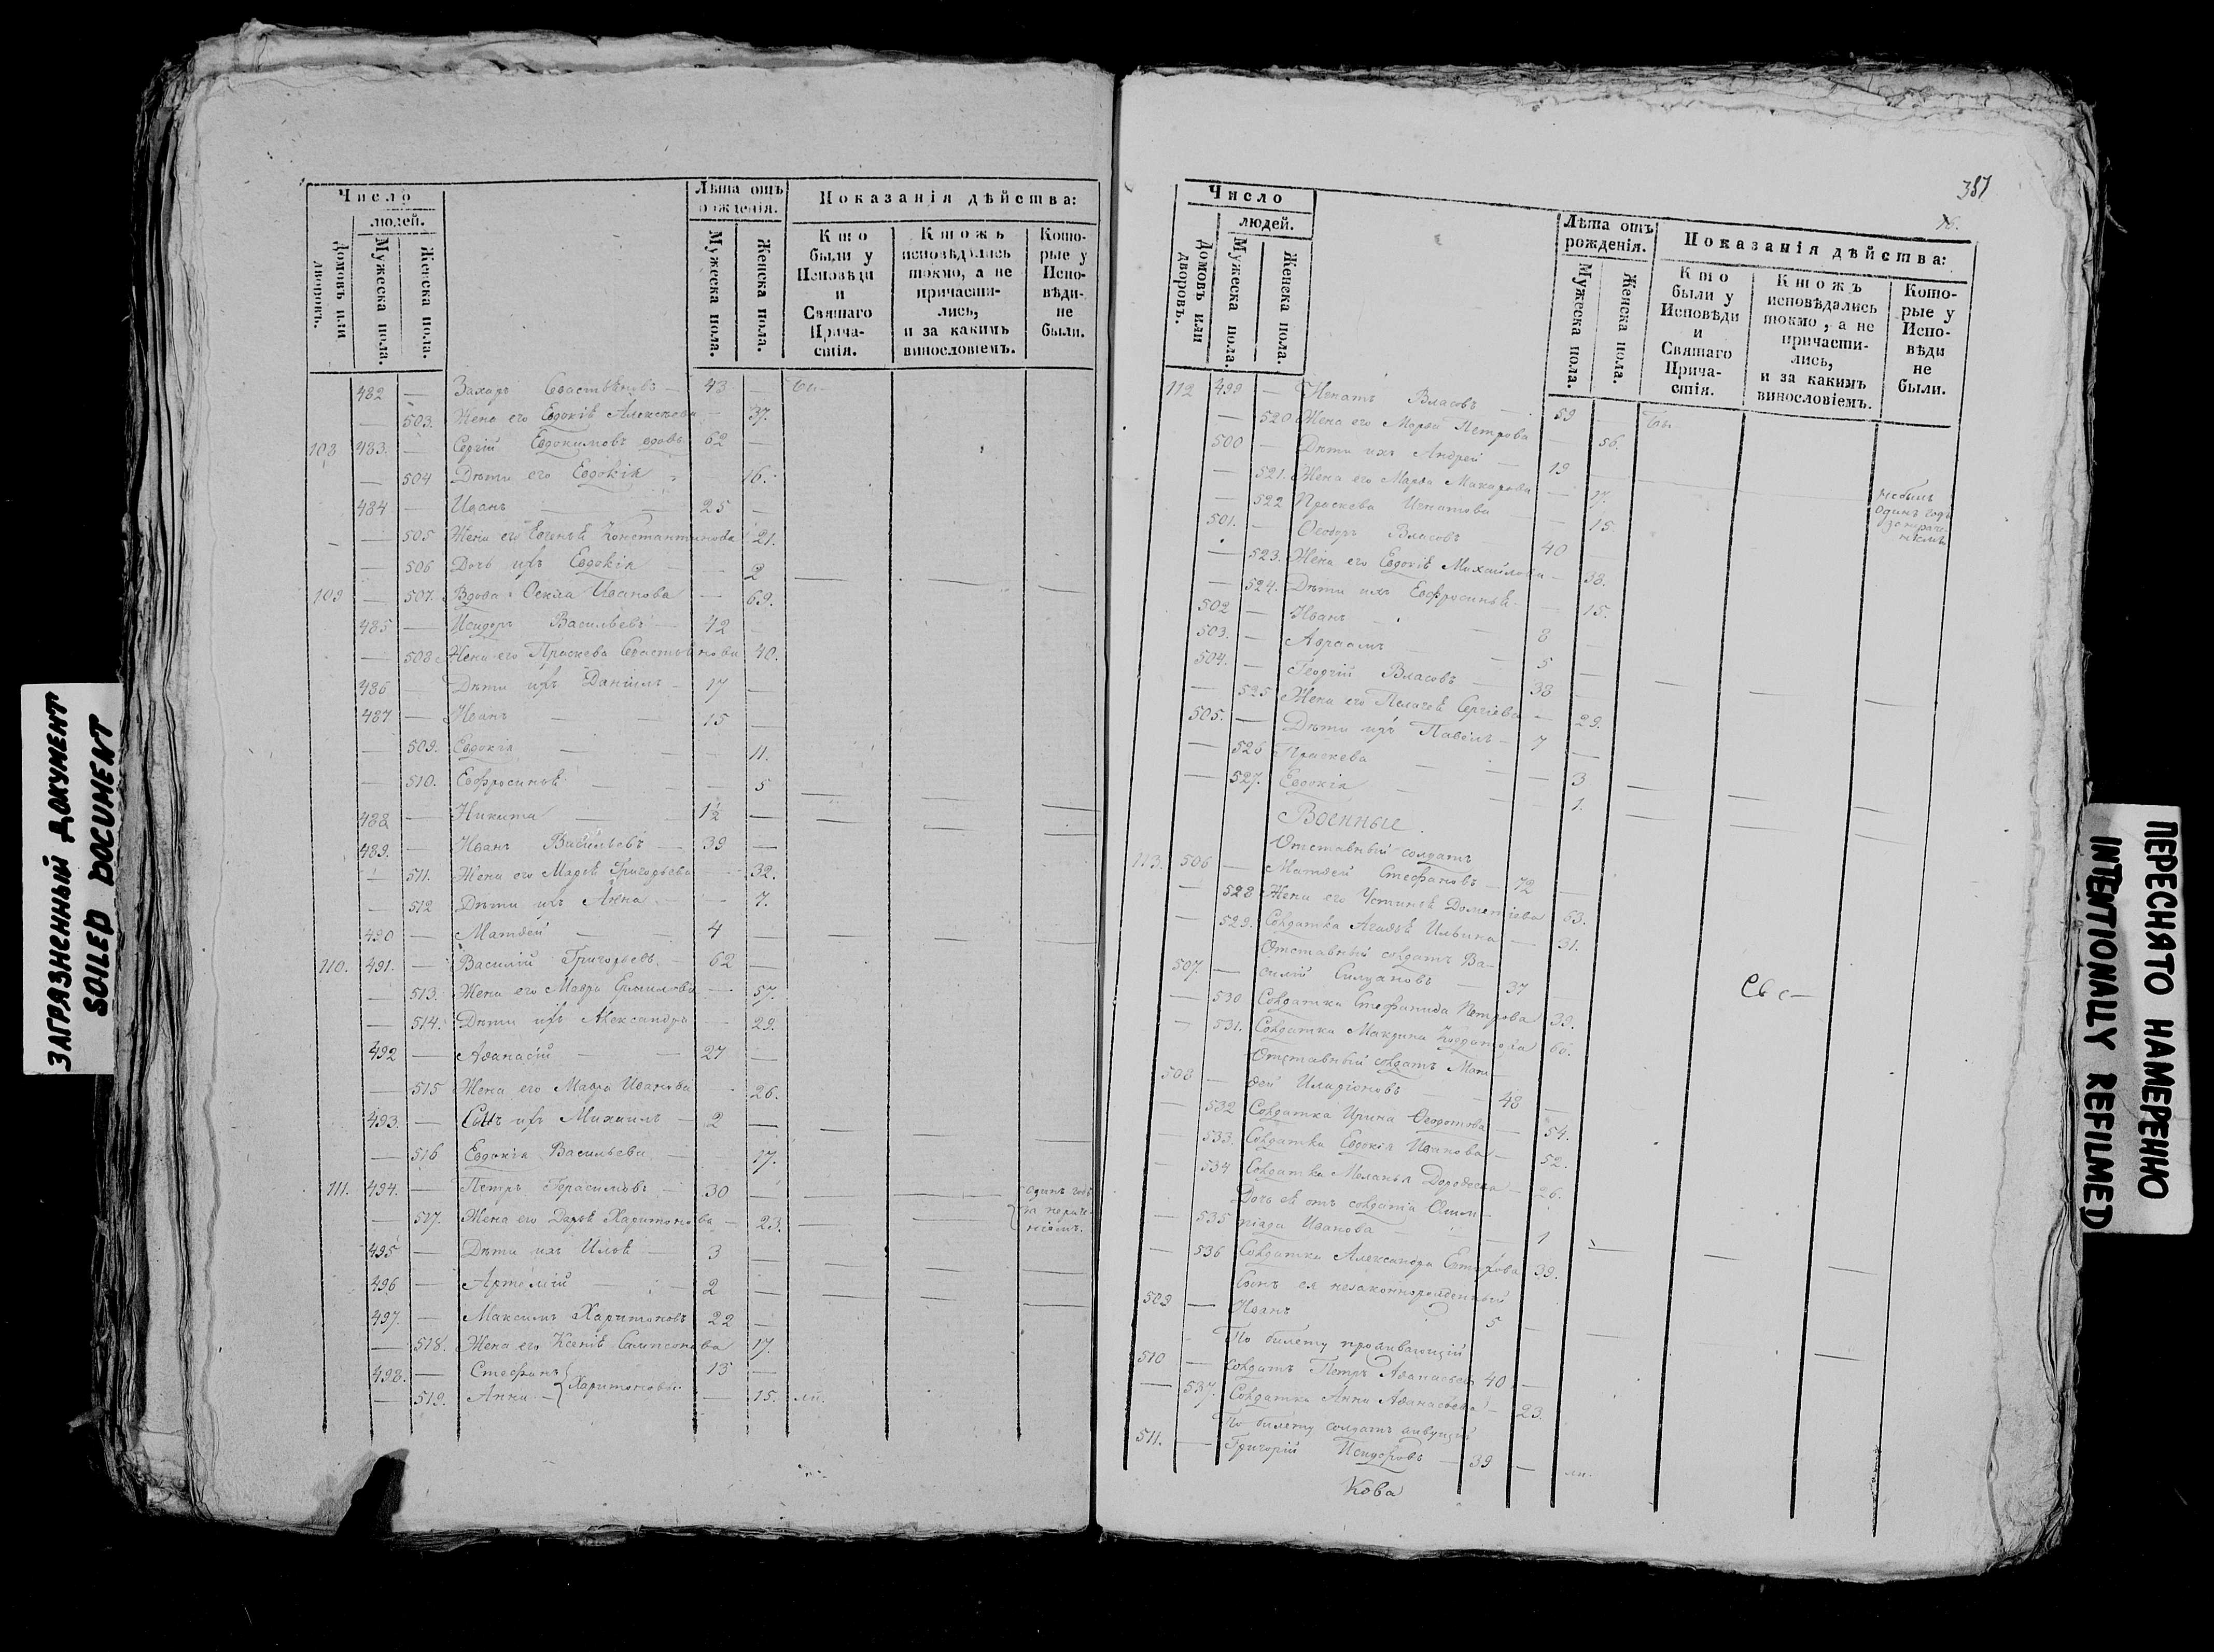 ЗАГРЯЗНЕННЫЙ ДОКУМЕНТ
SOILED DOCUMENT
Число
людей.
Домовъ или дворовъ.
Мужеска пола.
Женска пола.
Лѣта отъ рожденія.
Мужеска пола.
Женска пола.
Показанія дѣйства:
Кто были у Исповѣди и Святаго Прича-стія.
Ктожъ исповѣдались токмо, а не причасти-лись, и за какимъ винословіемъ.
Кото-рые у Испо-вѣди не были.
482 — Захаръ Севастьяновъ — 43 —
— 503. Жена его Евдокіѣ Алексѣева — 37.
108 483. — Сергій Евдокимовъ вдовъ 62 —
— 504 Дѣти его Евдокія 16.
484 — Иванъ — 25 —
— 505 Жена его Евгеньѣ Константинова 21.
— 506 Дочь ихъ Евдокія — 2
109 — 507. Вдова Ѳекла Иванова — 69.
485 — Исидоръ Васильевъ — 42
— 508 Жена его Праскева Севастьянова 40.
486 — Дѣти ихъ Даніилъ — 17 —
487 — Иванъ — 15 —
— 509. Евдокія — 11.
— 510. Евфросиньѣ — 5
488 — Никита — 1½ —
489. — Иванъ Васильевъ — 39 —
— 511. Жена его Марьѣ Григорьева — 32.
— 512 Дѣти ихъ Анна — 7.
490 — Матѳей — 4 —
110. 491. — Василій Григорьевъ — 62 —
— 513. Жена его Мавра — 57.
— 514. Дѣти ихъ Александра — 29.
492 — Аѳанасій — 27 —
— 515 Жена его Мавра Иванова — 26.
493. — Сынъ ихъ Михаилъ — 2 —
— 516 Евдокія Васильева — 17.
111. 494. — Петръ Герасимовъ — 30 — одинъ годъ
— 517. Жена его Дарьѣ Харитонова — 23. за нераче-ніемъ.
495 — Дѣти ихъ Ильѣ — 3 —
496 — Артемій — 2 —
497. — Максимъ Харитоновъ 22 —
— 518. Жена его Ксеніѣ Сампсонова 17.
498. — Стефанъ 15 —
— 519. Анна } Харитоновы — 15. ли.
387
Число
людей.
Домовъ или дворовъ.
Мужеска пола.
Женска пола.
Лѣта отъ рожденія.
Мужеска пола.
Женска пола.
Показанія дѣйства:
Кто были у Исповѣди и Святаго Прича-стія.
Ктожъ исповѣдались токмо, а не причасти-лись, и за какимъ винословіемъ.
Кото-рые у Испо-вѣди не были.
112 499 — Игнатъ Власовъ — 59 — Бы
— 520 Жена его Марѳа Петрова — 56.
500 — Дѣти ихъ Андрей — 19
— 521. Жена его Марѳа Макарова — 17. небылъ
— 522 Праскева Игнатова — 15. одинъ годъ за нераче-ніемъ
501. — Ѳеодоръ Власовъ — 40 —
— 523. Жена его Евдокіѣ Михайлова — 38.
— 524. Дѣти ихъ Евфросиньѣ — 15.
502 — Иванъ — 8 —
503. — Авраамъ — 5 —
504. — Георгій Власовъ — 38 —
— 525 Жена его Пелагеѣ Сергіева — 29.
505. — Дѣти ихъ Павелъ — 7 —
— 526 Праскева — 3
— 527. Евдокія — 1.
Военные.
Отставный солдатъ
113. 506 — Матѳей Стефановъ — 72 —
— 528 Жена его Устиньѣ Дометіева 63.
— 529. Солдатка Агаѳьѣ Ильина — 31.
Отставный солдатъ Ва-
507. — силій Силуановъ — 37
— 530 Солдатка Стефанида Петрова 39.
— 531. Солдатка Макрина 66.
Отставный солдатъ Мат-
508 — ѳей Иларіоновъ — 48 —
— 532 Солдатка Ирина Ѳеодотова — 54.
— 533. Солдатка Евдокія Иванова — 52.
— 534 Солдатка Меланья Дороѳеева — 26.
Дочь её отъ солдата Олим-
— 535 піада Иванова — 1
— 536 Солдатка Александра 39.
Сынъ ея незаконнорожденный
509 — Иванъ 5 —
По билету проживающій
510 — солдатъ Петръ Аѳанасьевъ 40 —
— 537. Солдатка Анна Аѳанасьева — 23.
По билету солдатъ живущій
511. — Григорій Исидоровъ — 39 — ли.
Кова
ПЕРЕСНЯТО НАМЕРЕННО
INTENTIONALLY REFILMED